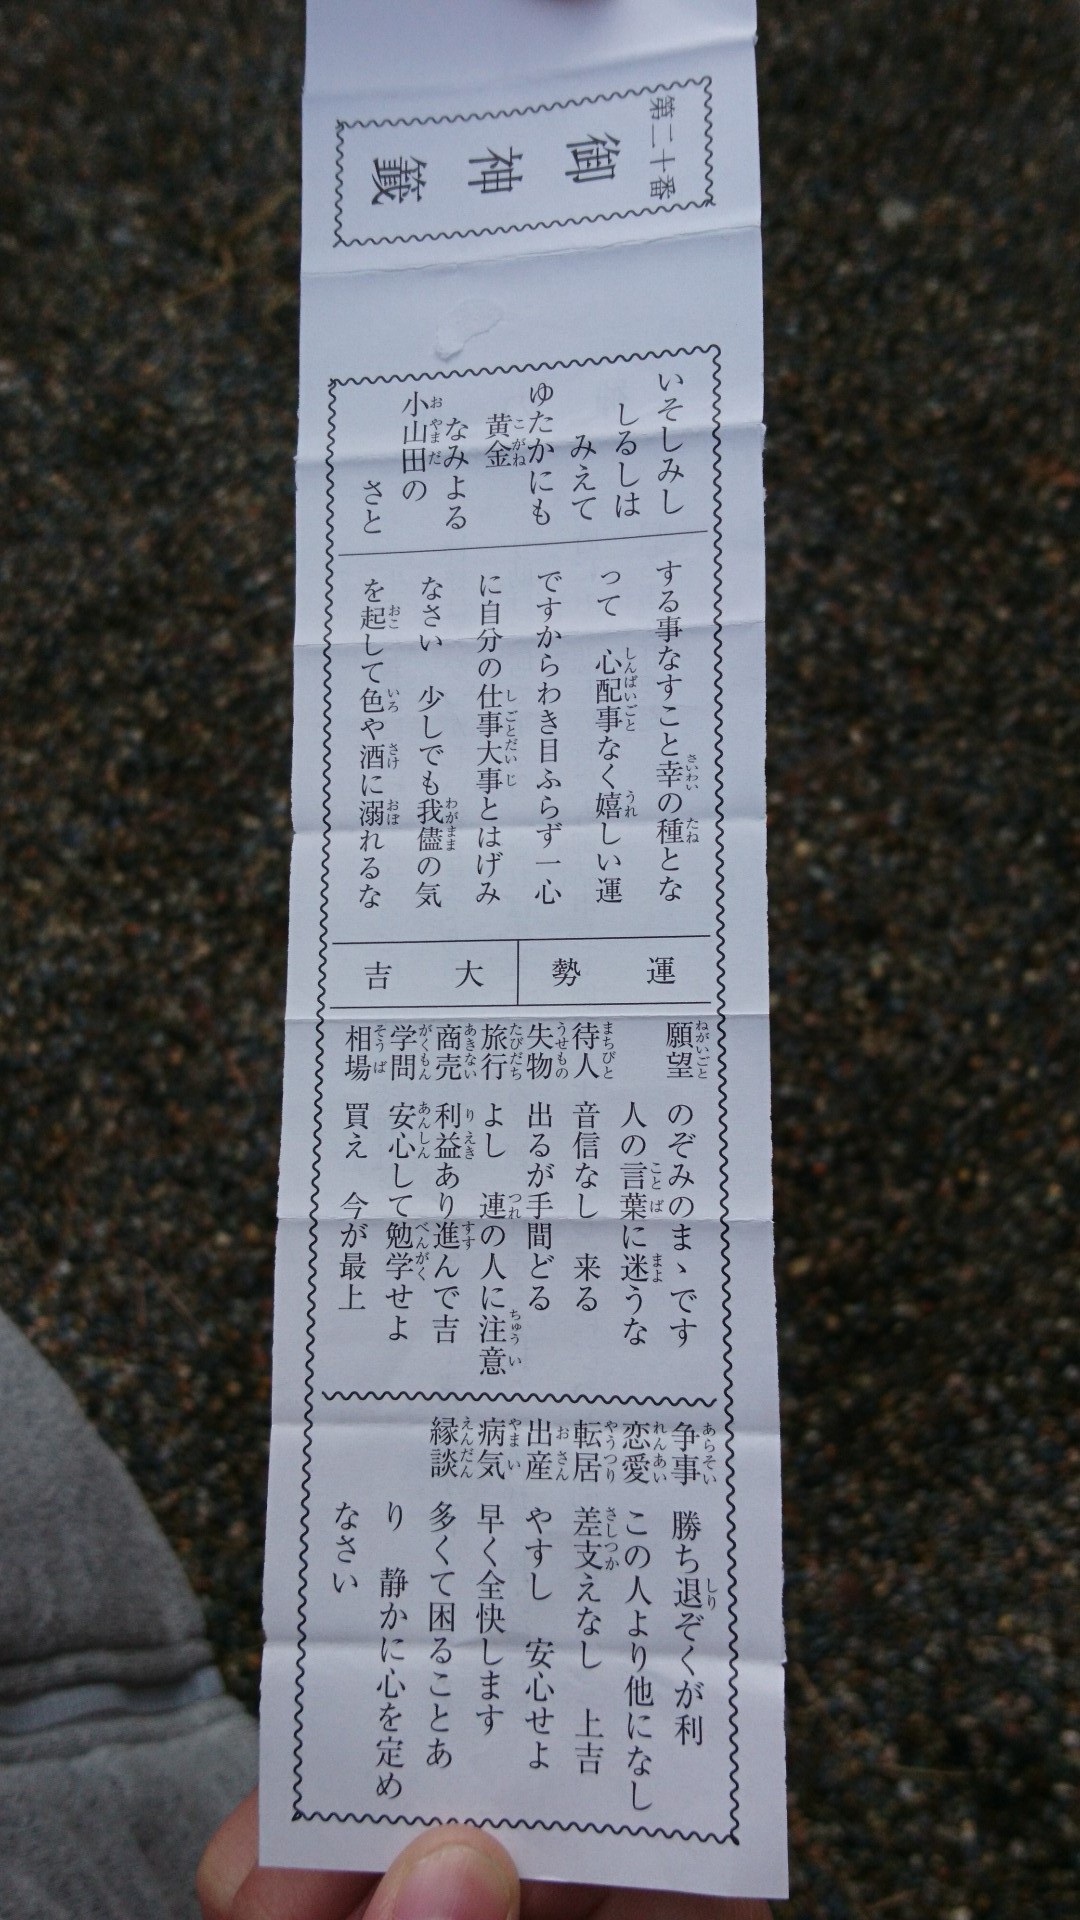 第二十番
御神籤
いそしみし
しるしは
みえて
ゆたかにも
黄金
なみよる
小山田の
さと
する事なすこと幸の種とな
って　心配事なく嬉しい運
ですからわき目ふらず一心
に自分の仕事大事とはげみ
なさい　少しでも我儘の気
を起して色や酒に溺れるな
運勢
大吉
願望　のぞみのまゝです
人の言葉に迷うな
待人　音信なし　来る
失物　出るが手間どる
旅行　よし　連の人に注意
商売　利益あり進んで吉
学問　安心して勉学せよ
相場　買え　今が最上
争事　勝ち退ぞくが利
恋愛　この人より他になし
転居　差支えなし　上吉
出産　やすし　安心せよ
病気　早く全快します
縁談　多くて困ることあ
り　静かに心を定め
なさい